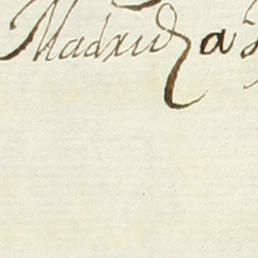 Madrid a